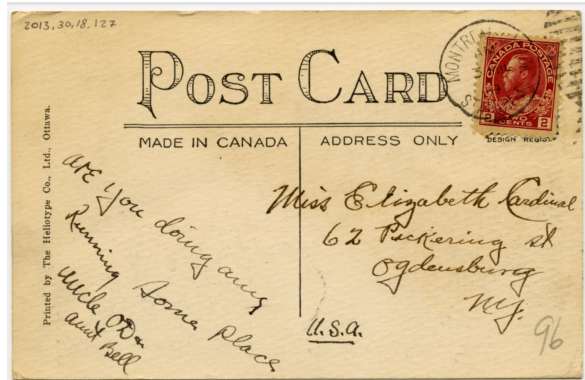 2013.30.18.127
POST CARD
MONTREAL
CANADA POSTAGE
2 TWO CENTS 2
MADE IN CANADA
ADDRESS ONLY
DESIGN REGIST
Printed by The Heliotype Co., Ltd., Ottawa.
are you doing any
Running some place
uncle
aunt Bell
Miss Elizabeth Cardinal
62 Pickering st
Ogdensburg
NY.
U.S.A.
96